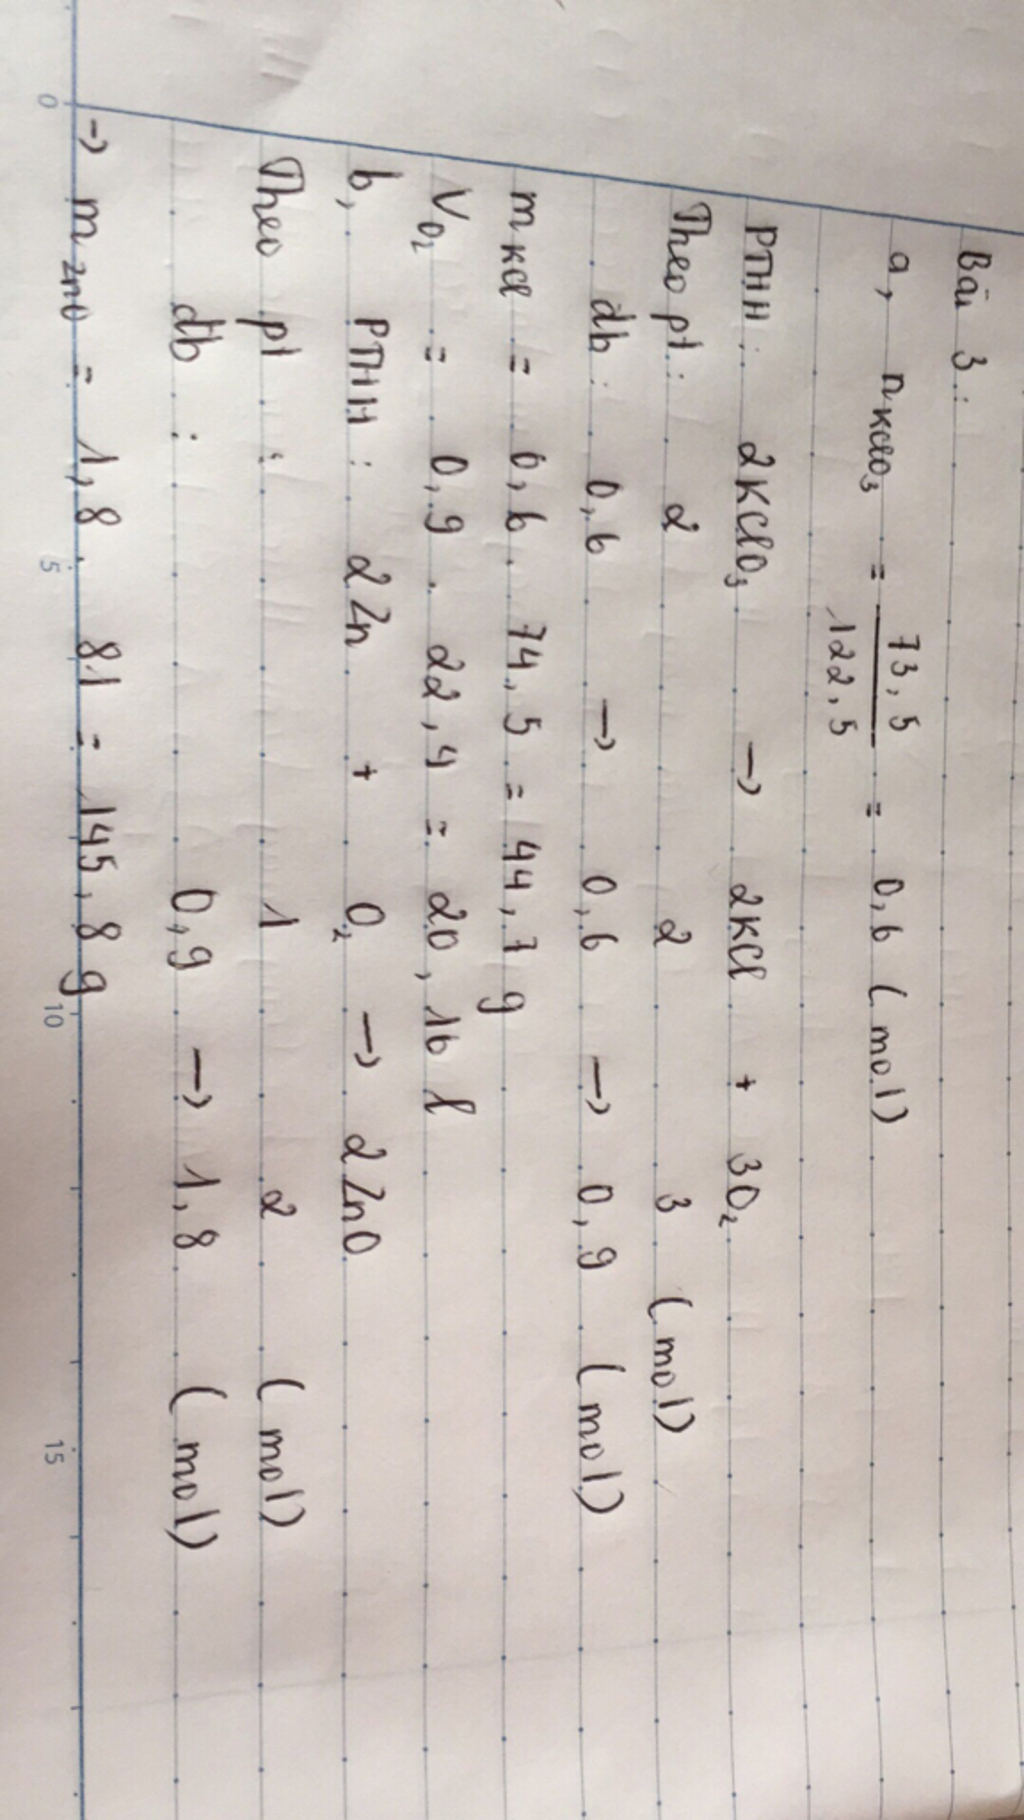 Bài 3:
a, nKClO₃ = 73,5 / 122,5 = 0,6 (mol)
PTHH: 2KClO₃ → 2KCl + 3O₂
Theo pt: 2 2 3 (mol)
đb: 0,6 → 0,6 → 0,9 (mol)
mKCl = 0,6 . 74,5 = 44,7 g
VO₂ = 0,9 . 22,4 = 20,16 l
b, PTHH: 2Zn + O₂ → 2ZnO
Theo pt: 1 2 (mol)
đb: 0,9 → 1,8 (mol)
→ mZnO = 1,8 . 81 = 145,8 g
0 5 10 15